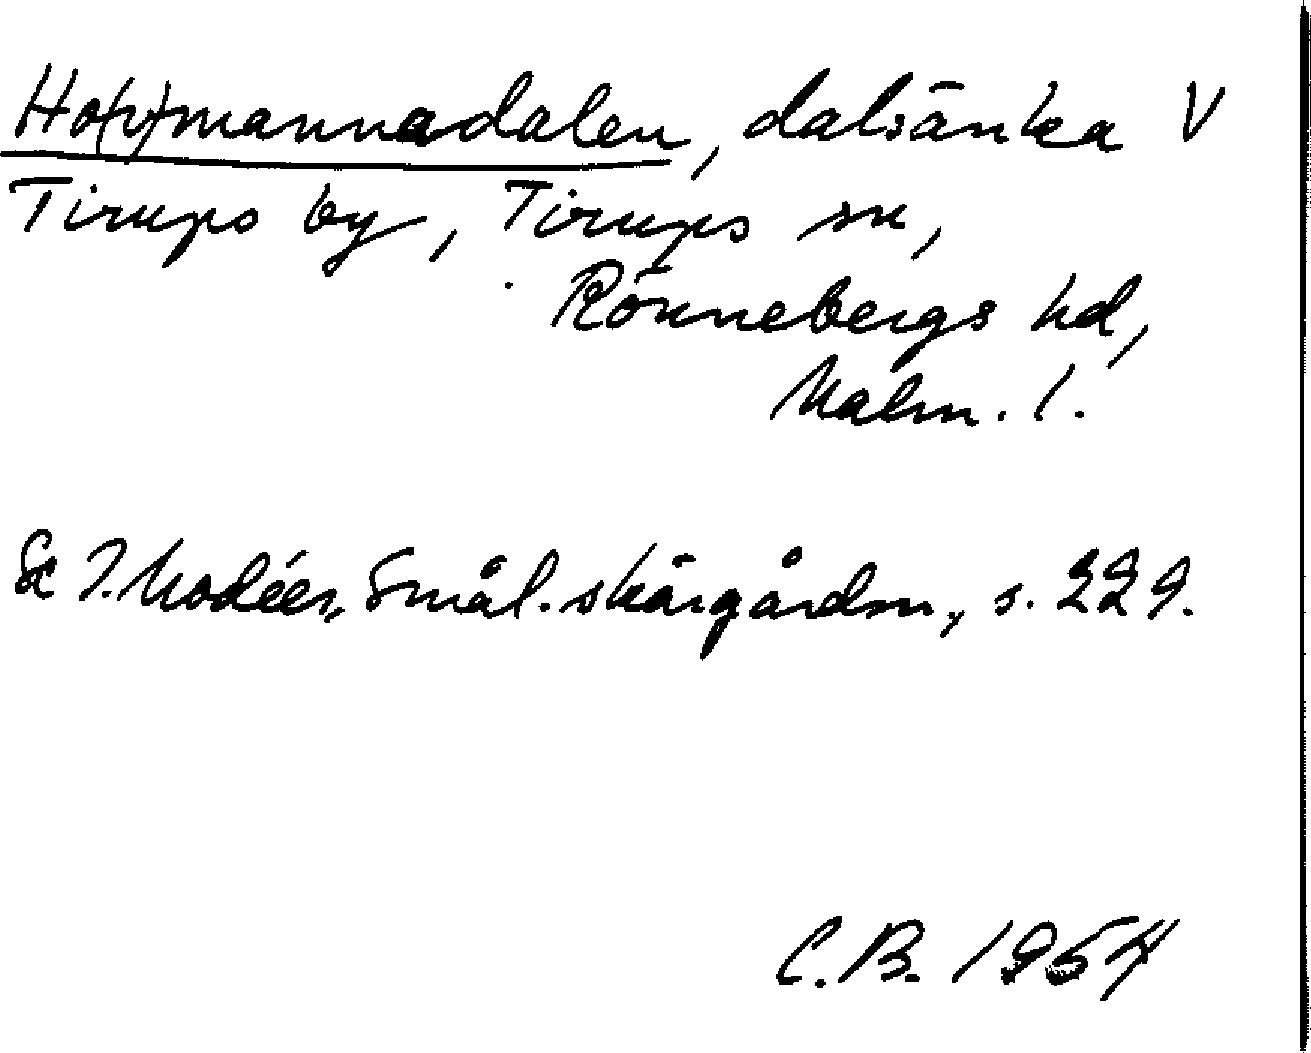 Ho(v)mannadalen, dalsänka V
Tirups by, Tirups sn,
Rönnebergs hd,
Malm. l.
Se I. Modéer, Smål. skärgårdsn., s. 229.
C.B. 1954